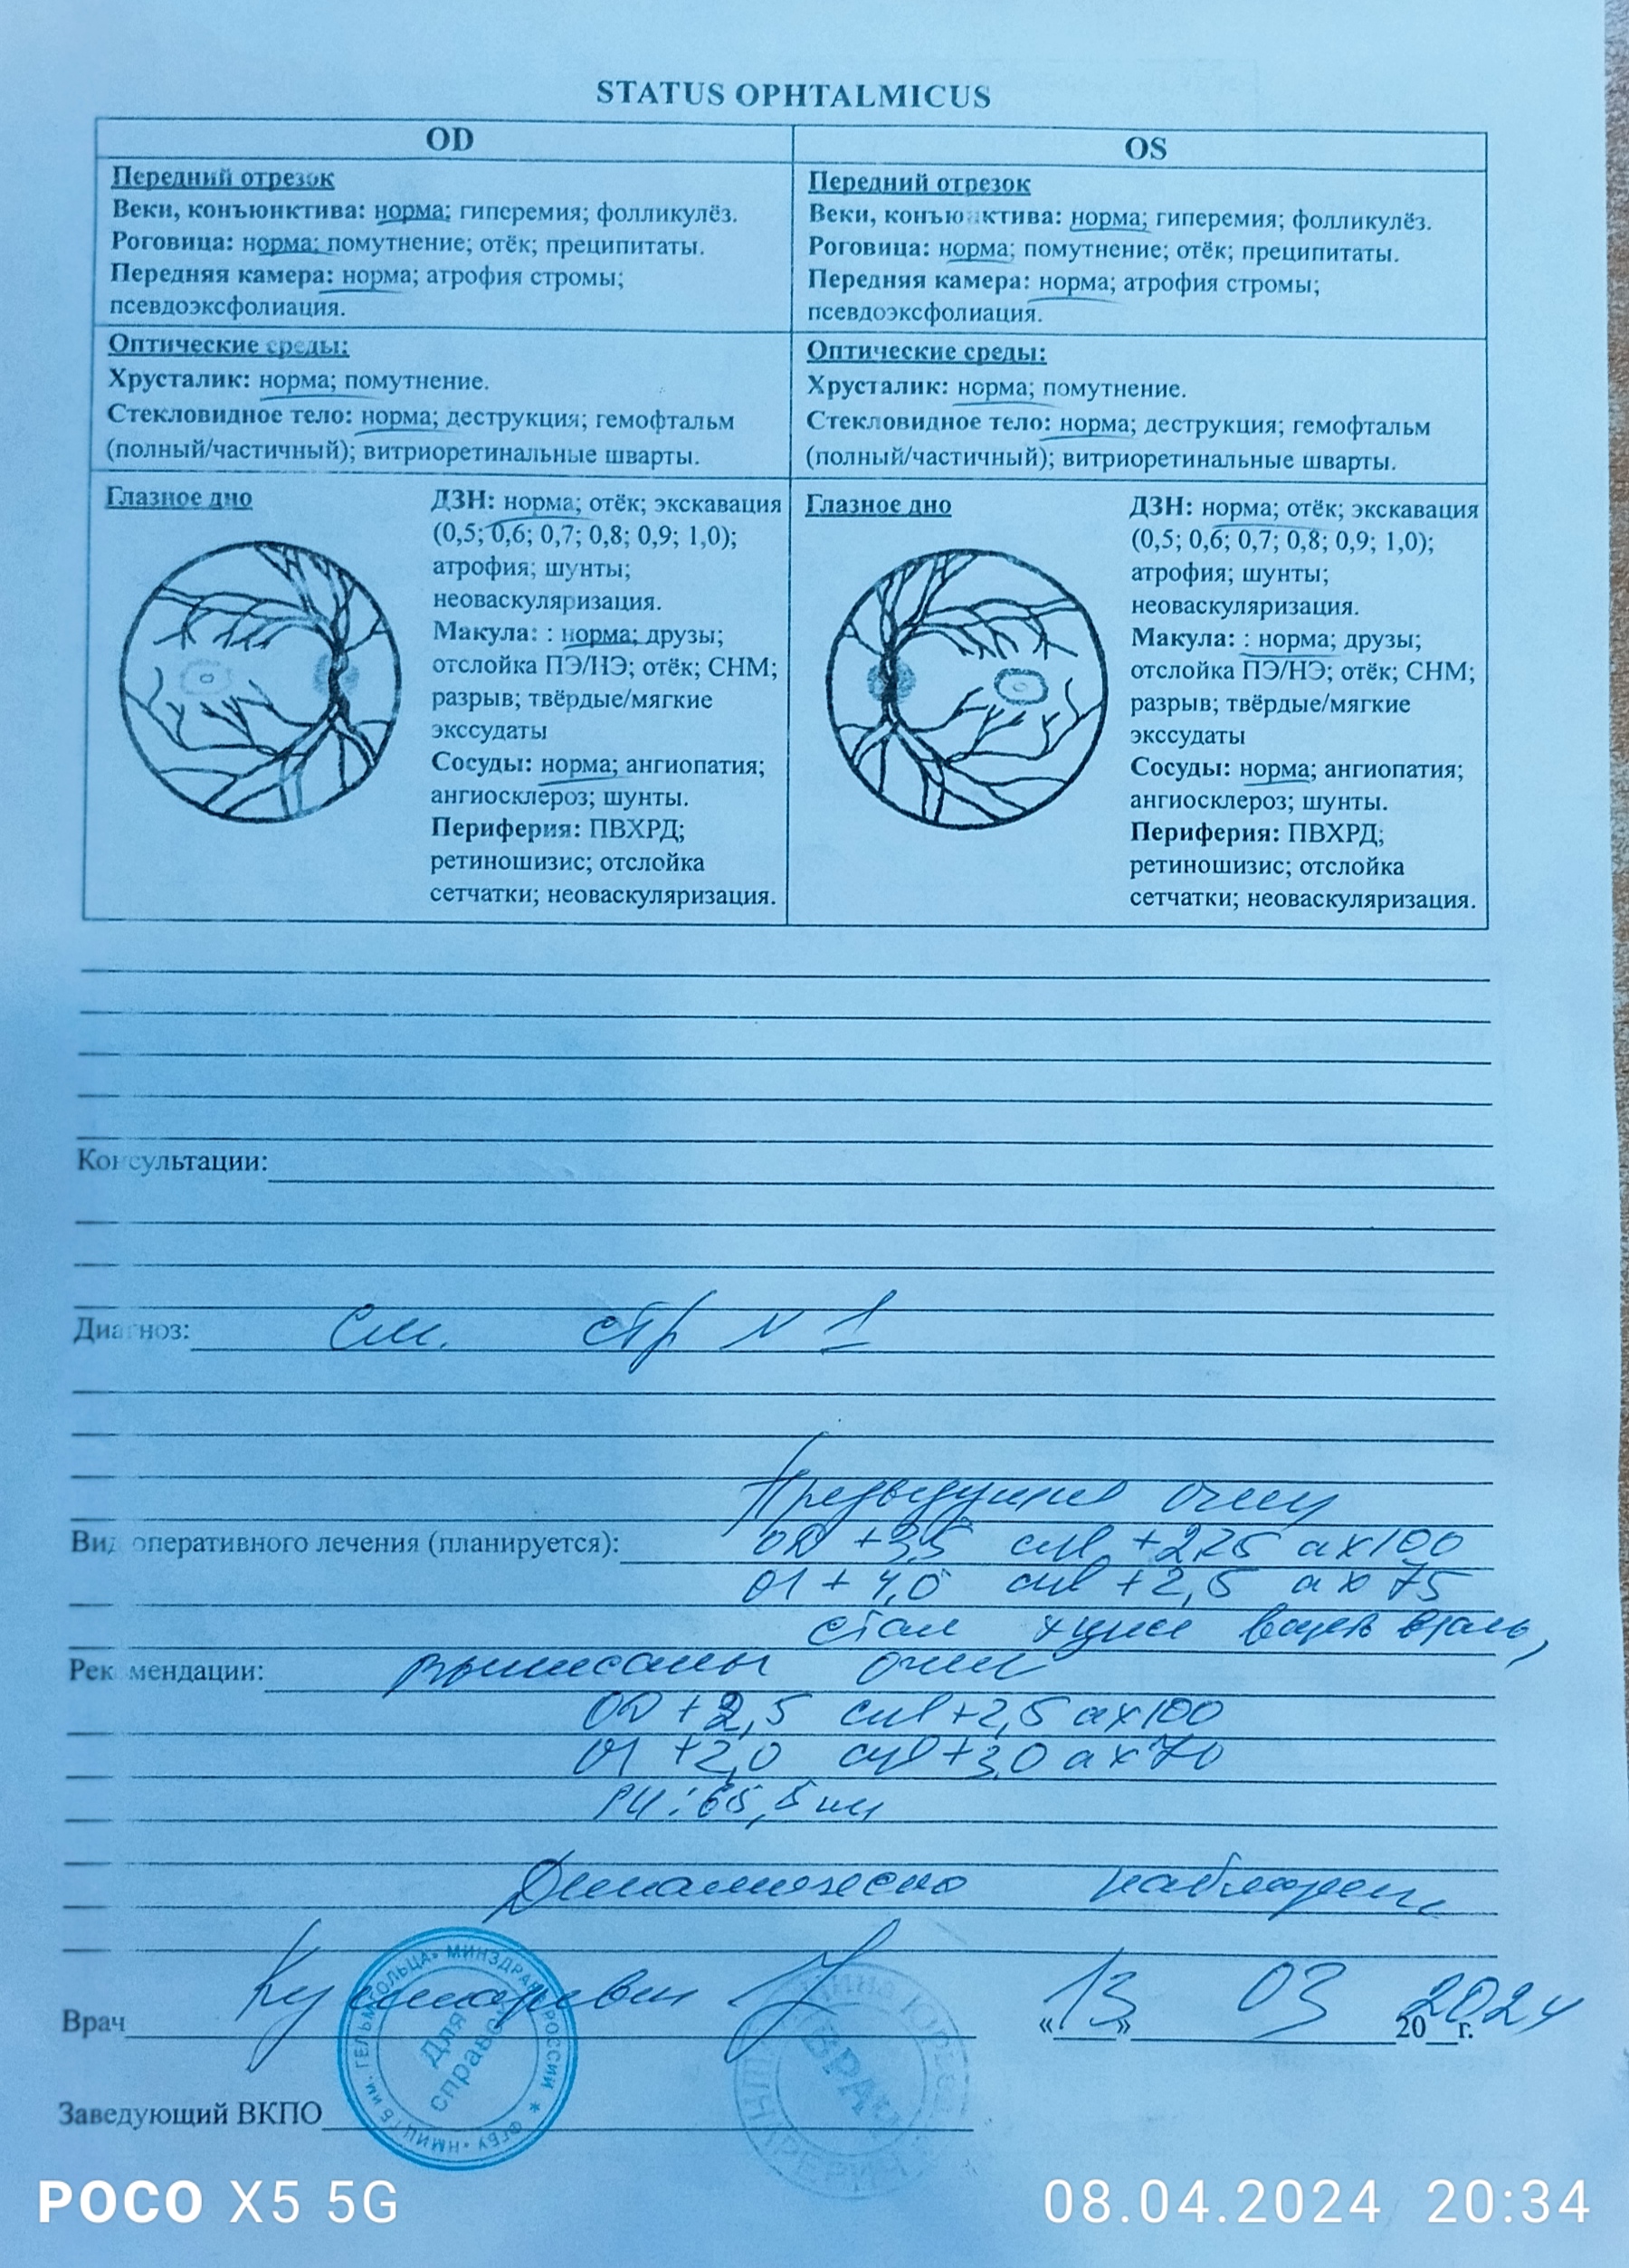 STATUS OPHTALMICUS
OD
Передний отрезок
Веки, конъюнктива: норма; гиперемия; фолликулёз.
Роговица: норма; помутнение; отёк; преципитаты.
Передняя камера: норма; атрофия стромы;
псевдоэксфолиация.
Оптические среды:
Хрусталик: норма; помутнение.
Стекловидное тело: норма; деструкция; гемофтальм
(полный/частичный); витриоретинальные шварты.
Глазное дно
ДЗН: норма; отёк; экскавация
(0,5; 0,6; 0,7; 0,8; 0,9; 1,0);
атрофия; шунты;
неоваскуляризация.
Макула: : норма; друзы;
отслойка ПЭ/НЭ; отёк; СНМ;
разрыв; твёрдые/мягкие
экссудаты
Сосуды: норма; ангиопатия;
ангиосклероз; шунты.
Периферия: ПВХРД;
ретиношизис; отслойка
сетчатки; неоваскуляризация.
OS
Передний отрезок
Веки, конъюнктива: норма; гиперемия; фолликулёз.
Роговица: норма; помутнение; отёк; преципитаты.
Передняя камера: норма; атрофия стромы;
псевдоэксфолиация.
Оптические среды:
Хрусталик: норма; помутнение.
Стекловидное тело: норма; деструкция; гемофтальм
(полный/частичный); витриоретинальные шварты.
Глазное дно
ДЗН: норма; отёк; экскавация
(0,5; 0,6; 0,7; 0,8; 0,9; 1,0);
атрофия; шунты;
неоваскуляризация.
Макула: : норма; друзы;
отслойка ПЭ/НЭ; отёк; СНМ;
разрыв; твёрдые/мягкие
экссудаты
Сосуды: норма; ангиопатия;
ангиосклероз; шунты.
Периферия: ПВХРД;
ретиношизис; отслойка
сетчатки; неоваскуляризация.
Консультации:
Диагноз: см. стр N 1
Предыдущие очки
Вид оперативного лечения (планируется): OD +3,5 cyl +2,25 ax 100
OS +4,0 cyl +2,5 ax 75
стал хуже видеть вдаль,
Рекомендации: выписаны очки
OD +2,5 cyl +2,5 ax 100
OS +2,0 cyl +3,0 ax 70
РЦ: 65,5 мм
Динамическое наблюдение
Врач Кушнаревич «13» 03 2024 г.
ФГБУ «НМИЦ ГБ им. ГЕЛЬМГОЛЬЦА» МИНЗДРАВА РОССИИ
Для справок
ВРАЧ
Заведующий ВКПО
POCO X5 5G
08.04.2024 20:34